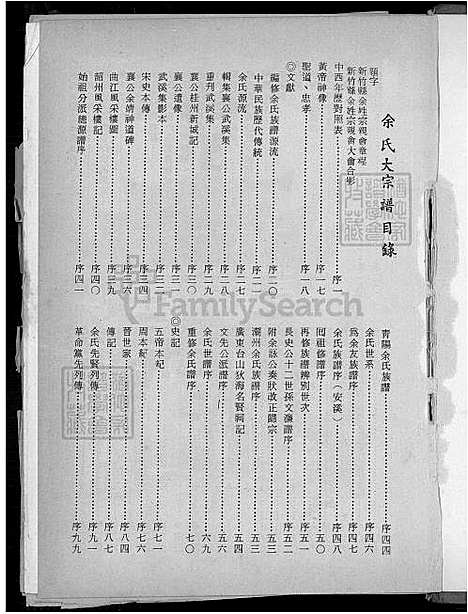 余氏大宗譜目錄
題字
新竹縣余姓宗親會章程
新竹縣余姓宗親會大會合影
中西年歷對照表 序一
黃帝神像 序七
聖道、忠孝 序八
◎文獻
編修余氏族譜源流 序二〇
中華民族歷代傳統 序二一
余氏源流 序二七
輯集襄公武溪集 序二八
重刊武溪集 序二九
襄公桂州新城記 序三〇
襄公遺像 序三一
武溪集影本 序三二
宋史本傳 序三四
襄公余靖神道碑 序三六
曲江風采樓圖 序三九
韶州風采樓記 序四〇
始祖分派總源譜序 序四一
青陽余氏族譜 序四四
余氏世系 序四六
為余友族譜序 序四七
余氏族譜序（安溪） 序四八
囘祖修譜序 序五〇
再修族譜辨別世次 序五一
長史公十二世孫文瀰譜序 序五二
附余詠公奏狀改正餽宗 序五三
潮州余氏族譜序 序五三
廣東台山狄海名賢祠記 序五四
文先公派譜序 序五六
余氏世譜序 序六九
重修余氏譜序 序七〇
◎史記
五帝本紀 序七一
周本紀 序七六
晉世家 序八四
傳記 序八七
余氏先賢列傳 序九一
革命黨先列傳 序九九
FamilySearch